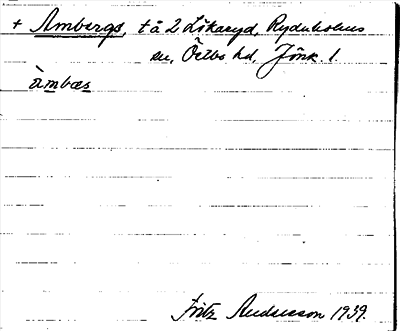 + Ambergs, t å 2 Lökaryd, Rydaholms
sn, Östbo hd, Jönk. l.
àmbæs
Fritz Andersson 1939.